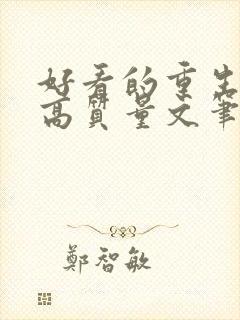 好看的重生
高質量文筆
鄭智敏